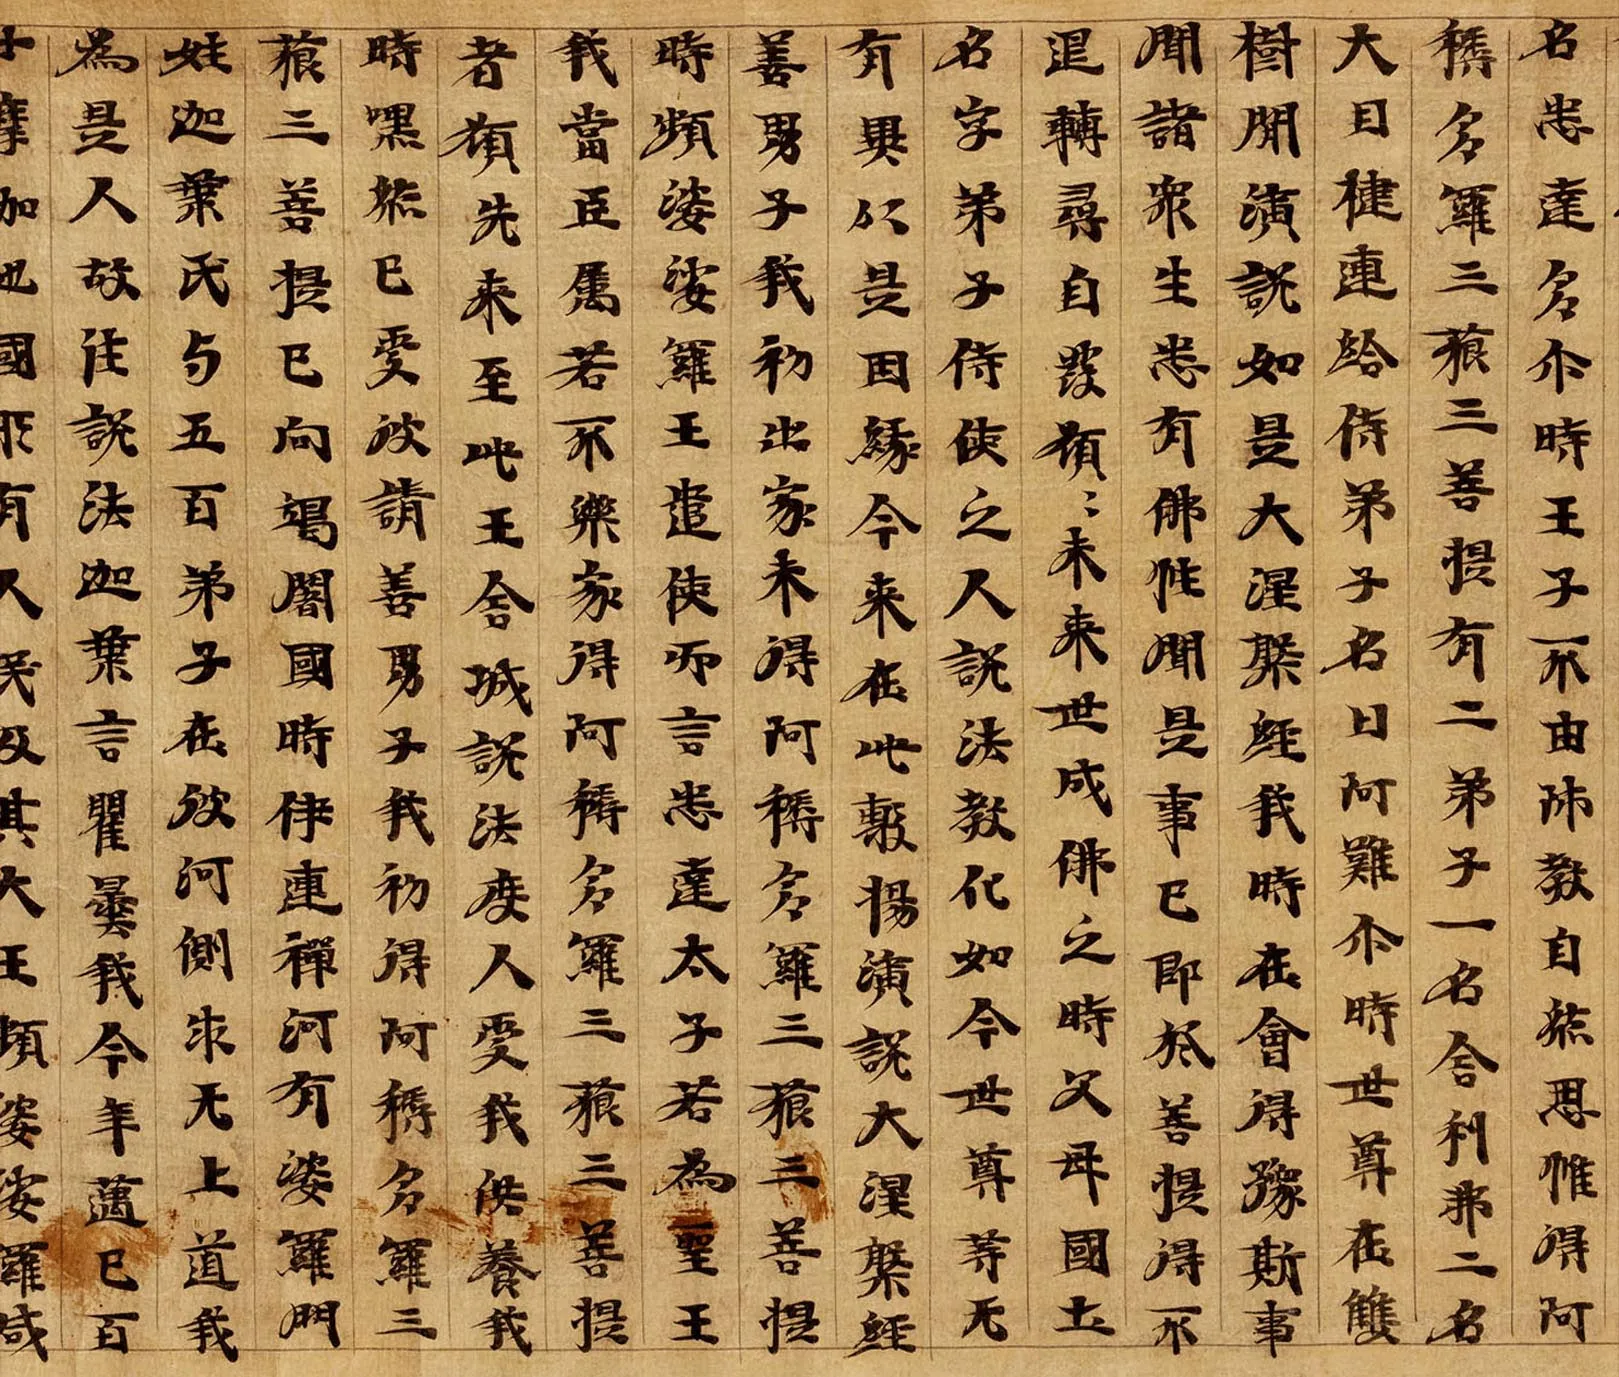 名悉達多尒時王子不由師教自然思惟得阿
耨多羅三藐三菩提有二弟子一名舍利弗二名
大目揵連給侍弟子名曰阿難尒時世尊在雙
樹間演說如是大涅槃經我時在會得豫斯事
聞諸衆生悉有佛性聞是事已即於菩提得不
退轉尋自發願〻未来世成佛之時父母國土
名字弟子侍使之人說法教化如今世尊等无
有異以是因緣今来在此敷揚演說大涅槃經
善男子我初出家未得阿耨多羅三藐三菩提
時頻婆娑羅王遣使而言悉達太子若為聖王
我當臣属若不樂家得阿耨多羅三藐三菩提
者願先来至此王舍城說法度人受我供養我
時嘿然已受彼請善男子我初得阿耨多羅三
藐三菩提已向竭闍國時伊連禪河有婆羅門
姓迦葉氏与五百弟子在彼河側求无上道我
為是人故往說法迦葉言瞿曇我今年邁已百
摩伽陁國所有人民及其大王頻婆娑羅咸